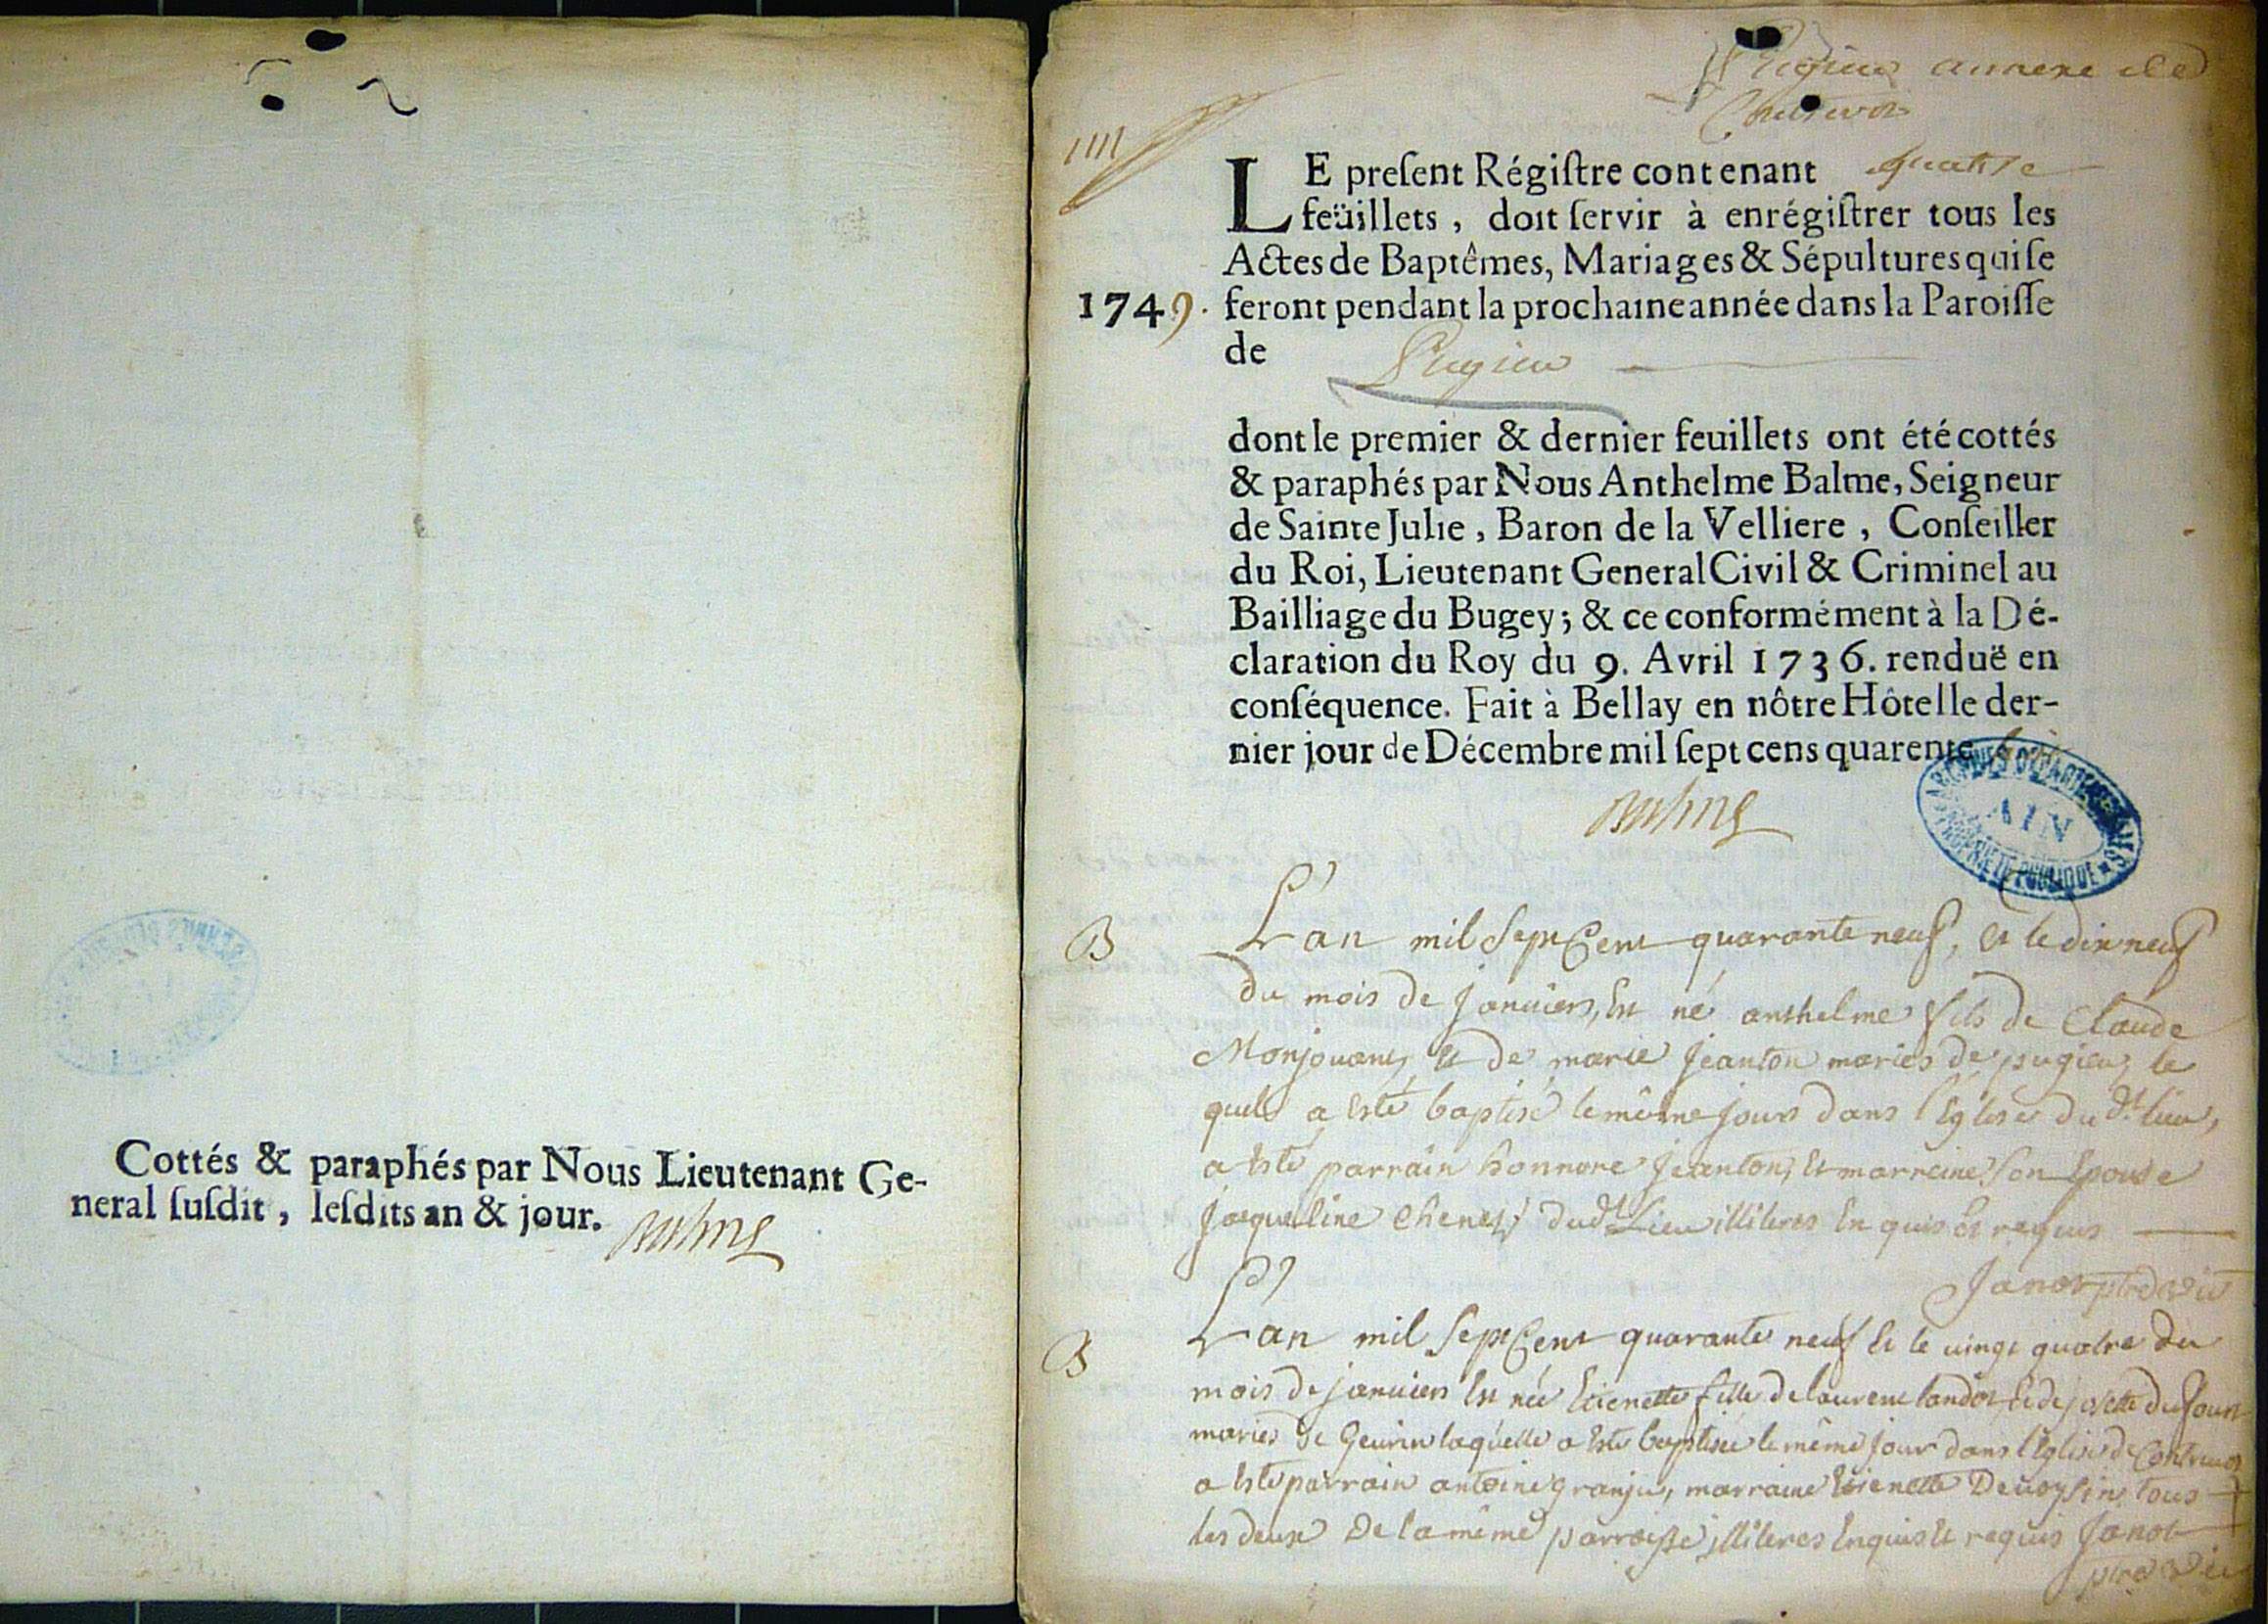 Cottés & paraphés par Nous Lieutenant Ge-
neral ſuſdit, leſdits an & jour.
Pugieu annexe de
1111
LE preſent Régiſtre contenant quatre
feüillets, doit ſervir à enrégiſtrer tous les
Actes de Baptêmes, Mariages & Sépultures qui ſe
1749. feront pendant la prochaine année dans la Paroiſſe
de Pugieu
dont le premier & dernier feuillets ont été cottés
& paraphés par Nous Anthelme Balme, Seigneur
de Sainte Julie, Baron de la Velliere, Conſeiller
du Roi, Lieutenant General Civil & Criminel au
Bailliage du Bugey; & ce conformément à la Dé-
claration du Roy du 9. Avril 1736. renduë en
conſéquence. Fait à Bellay en nôtre Hôtel le der-
nier jour de Décembre mil ſept cens quarente
Balme
ARCHIVES DÉPARTEMENTALES
AIN
PROPRIÉTÉ PUBLIQUE
B L'an mil sept Cent quarante neuf, et le dix neuf
du mois de janvier, Est né anthelme fils de Claude
Monjouant, et de marie jeanton mariés de pugieu, le
quel a esté baptisé le même jour dans l'Eglise du dt lieu,
a esté parrain honnore jeanton, et marreine son Epouse
jaqueline dudt Lieu illiteres Enquis et requis
Janot
B L'an mil sept Cent quarante neuf et le vingt quatre du
mois de janvier Est née Etienette fille de laurent landot, et de josette dufour
mariés de laquelle a esté baptisée le même jour dans l'Eglise de Contrevoz
a esté parrain antoine granju, marraine Etienette Devoysin tous
les deux De la même parroisse, illiteres Enquis et requis Janot